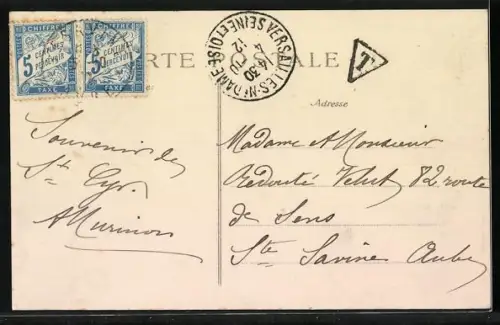 CHIFFRE CHIFFRE
5 CENTIMES À PERCEVOIR 5 CENTIMES À PERCEVOIR
TAXE TAXE
CARTE POSTALE
VERSAILLES-Nt DAME
14-30
4
12
SEINE ET OISE
T
Adresse
Souvenir de
St Cyr.
Madame et Monsieur
Redouté 82 route
de Sens
Ste Savine Aube